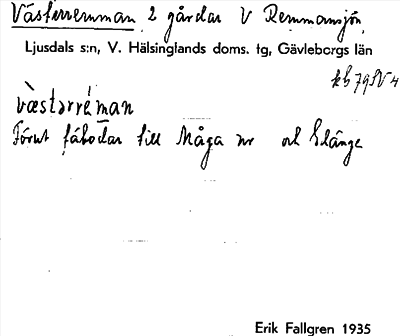 Västerremman 2 gårdar V Remmansjön
Ljusdals s:n, V. Hälsinglands doms. tg, Gävleborgs län
kb 79 SV 4
væstərréman
Förut fäbodar till Måga nr och Slänge
Erik Fallgren 1935